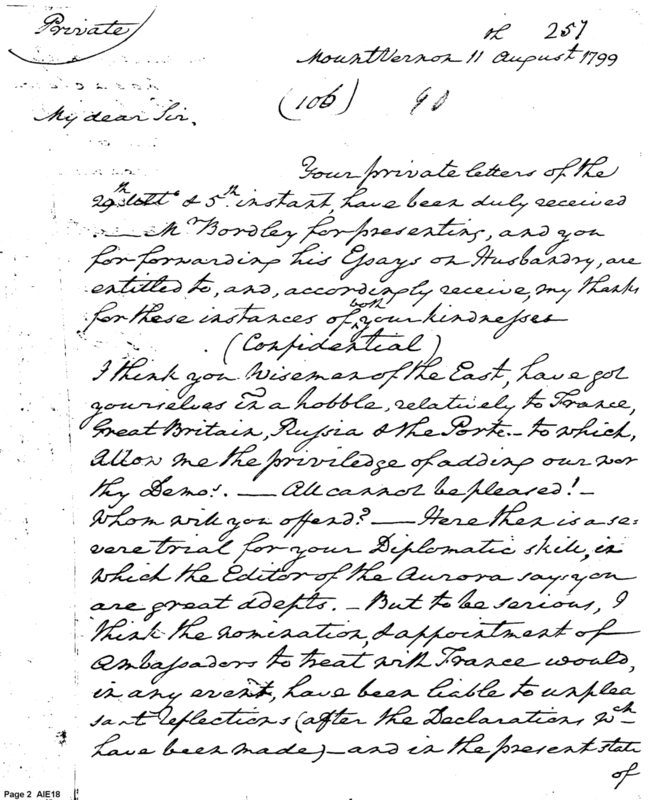 Private
th 257
Mount Vernon 11 August 1799
(106) 90
My dear Sir,
Your private letters of the
29th ulto & 5th instant, have been duly received
— Mr Bordley for presenting, and you
for forwarding his Essays on Husbandry, are
entitled to, and, accordingly receive, my thanks
for these instances of both your kindnesses
(Confidential)
I think you Wisemen of the East, have got
yourselves in a hobble, relatively to France,
Great Britain, Russia & the Porte — to which,
allow me the priviledge of adding our wor
thy Demos. — All cannot be pleased! —
Whom will you offend? — Here then is a se=
vere trial for your Diplomatic skill, in
which the Editor of the Aurora says you
are great adepts. — But to be serious, I
think the nomination, & appointment of
Ambassadors to treat with France would,
in any event, have been liable to unplea
sant reflections (after the Declarations wch
have been made) — and in the present state
of
Page 2 AIE18